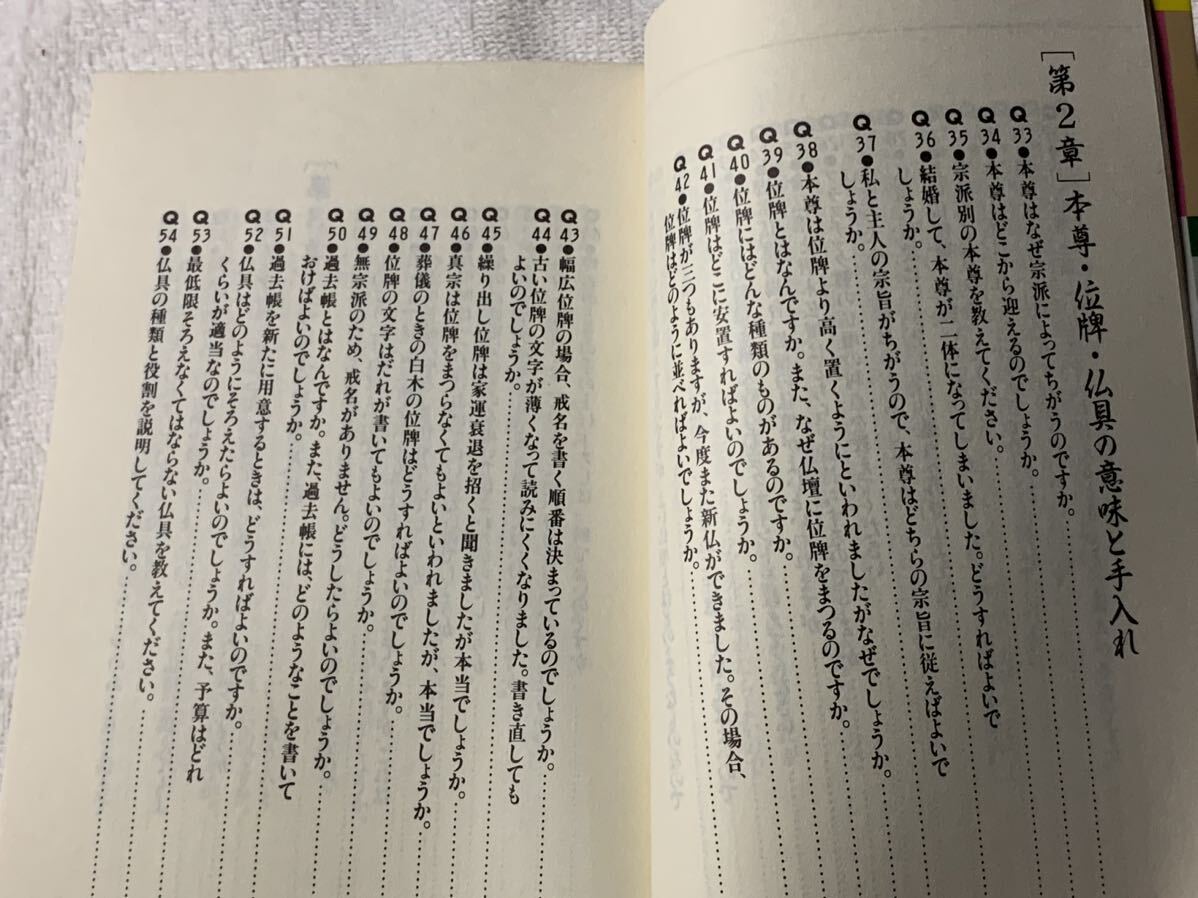 [第2章]本尊・位牌・仏具の意味と手入れ
Q33●本尊はなぜ宗派によってちがうのですか。
Q34●本尊はどこから迎えるのでしょうか。
Q35●宗派別の本尊を教えてください。
Q36●結婚して、本尊が二体になってしまいました。どうすればよいで
しょうか。
Q37●私と主人の宗旨がちがうので、本尊はどちらの宗旨に従えばよいで
しょうか。
Q38●本尊は位牌より高く置くようにといわれましたがなぜでしょうか。
Q39●位牌とはなんですか。また、なぜ仏壇に位牌をまつるのですか。
Q40●位牌にはどんな種類のものがあるのですか。
Q41●位牌はどこに安置すればよいのでしょうか。
Q42●位牌が三つもありますが、今度また新仏ができました。その場合、
位牌はどのように並べればよいでしょうか。
Q43●幅広位牌の場合、戒名を書く順番は決まっているのでしょうか。
Q44●古い位牌の文字が薄くなって読みにくくなりました。書き直しても
よいのでしょうか。
Q45●繰り出し位牌は家運衰退を招くと聞きましたが本当でしょうか。
Q46●真宗は位牌をまつらなくてもよいといわれましたが、本当でしょうか。
Q47●葬儀のときの白木の位牌はどうすればよいのでしょうか。
Q48●位牌の文字はだれが書いてもよいのでしょうか。
Q49●無宗派のため、戒名がありません。どうしたらよいのでしょうか。
Q50●過去帳とはなんですか。また、過去帳には、どのようなことを書いて
おけばよいのでしょうか。
Q51●過去帳を新たに用意するときは、どうすればよいのですか。
Q52●仏具はどのようにそろえたらよいのでしょうか。また、予算はどれ
くらいが適当なのでしょうか。
Q53●最低限そろえなくてはならない仏具を教えてください。
Q54●仏具の種類と役割を説明してください。